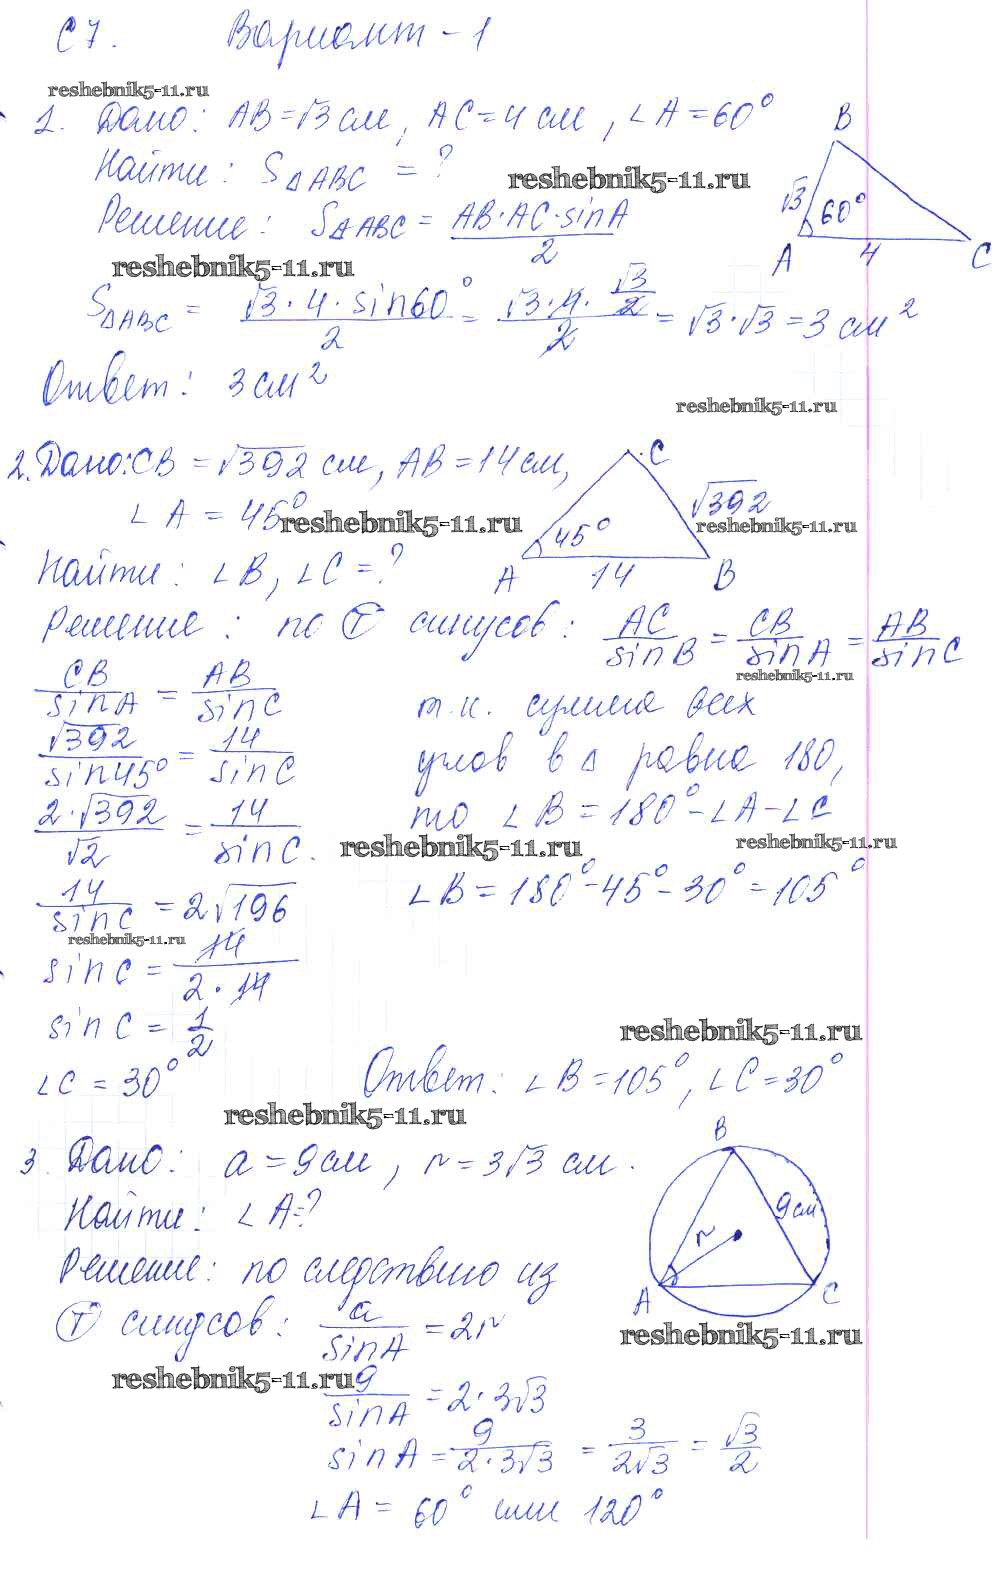 С7. Вариант - 1
reshebnik5-11.ru
1. Дано: AB=√3 см, AC=4 см, ∠A=60°
Найти: S△ABC = ?
reshebnik5-11.ru
Решение: S△ABC = AB·AC·sinA / 2
reshebnik5-11.ru
B
√3
60°
A
4
C
S△ABC = √3·4·sin60° / 2 = √3·4·√3/2 / 2 = √3·√3 = 3 см²
Ответ: 3 см²
reshebnik5-11.ru
2. Дано: CB = √392 см, AB = 14 см,
∠A = 45°
reshebnik5-11.ru
C
√392
reshebnik5-11.ru
45°
A
14
B
Найти: ∠B, ∠C = ?
Решение: по Т синусов: AC/sinB = CB/sinA = AB/sinC
reshebnik5-11.ru
CB/sinA = AB/sinC
√392/sin45° = 14/sinC
2·√392/√2 = 14/sinC.
14/sinC = 2√196
reshebnik5-11.ru
sinC = 14/2·14
sinC = 1/2
∠C = 30°
т.к. сумма всех
углов в △ равна 180,
то ∠B = 180°-∠A-∠C
reshebnik5-11.ru
reshebnik5-11.ru
∠B = 180°-45°-30° = 105°
reshebnik5-11.ru
Ответ: ∠B=105°, ∠C=30°
reshebnik5-11.ru
3. Дано: a=9см, r=3√3 см.
Найти: ∠A=?
Решение: по следствию из
Т синусов: a/sinA = 2r
B
9см
r
A
C
reshebnik5-11.ru
reshebnik5-11.ru
9/sinA = 2·3√3
sinA = 9/2·3√3 = 3/2√3 = √3/2
∠A = 60° или 120°